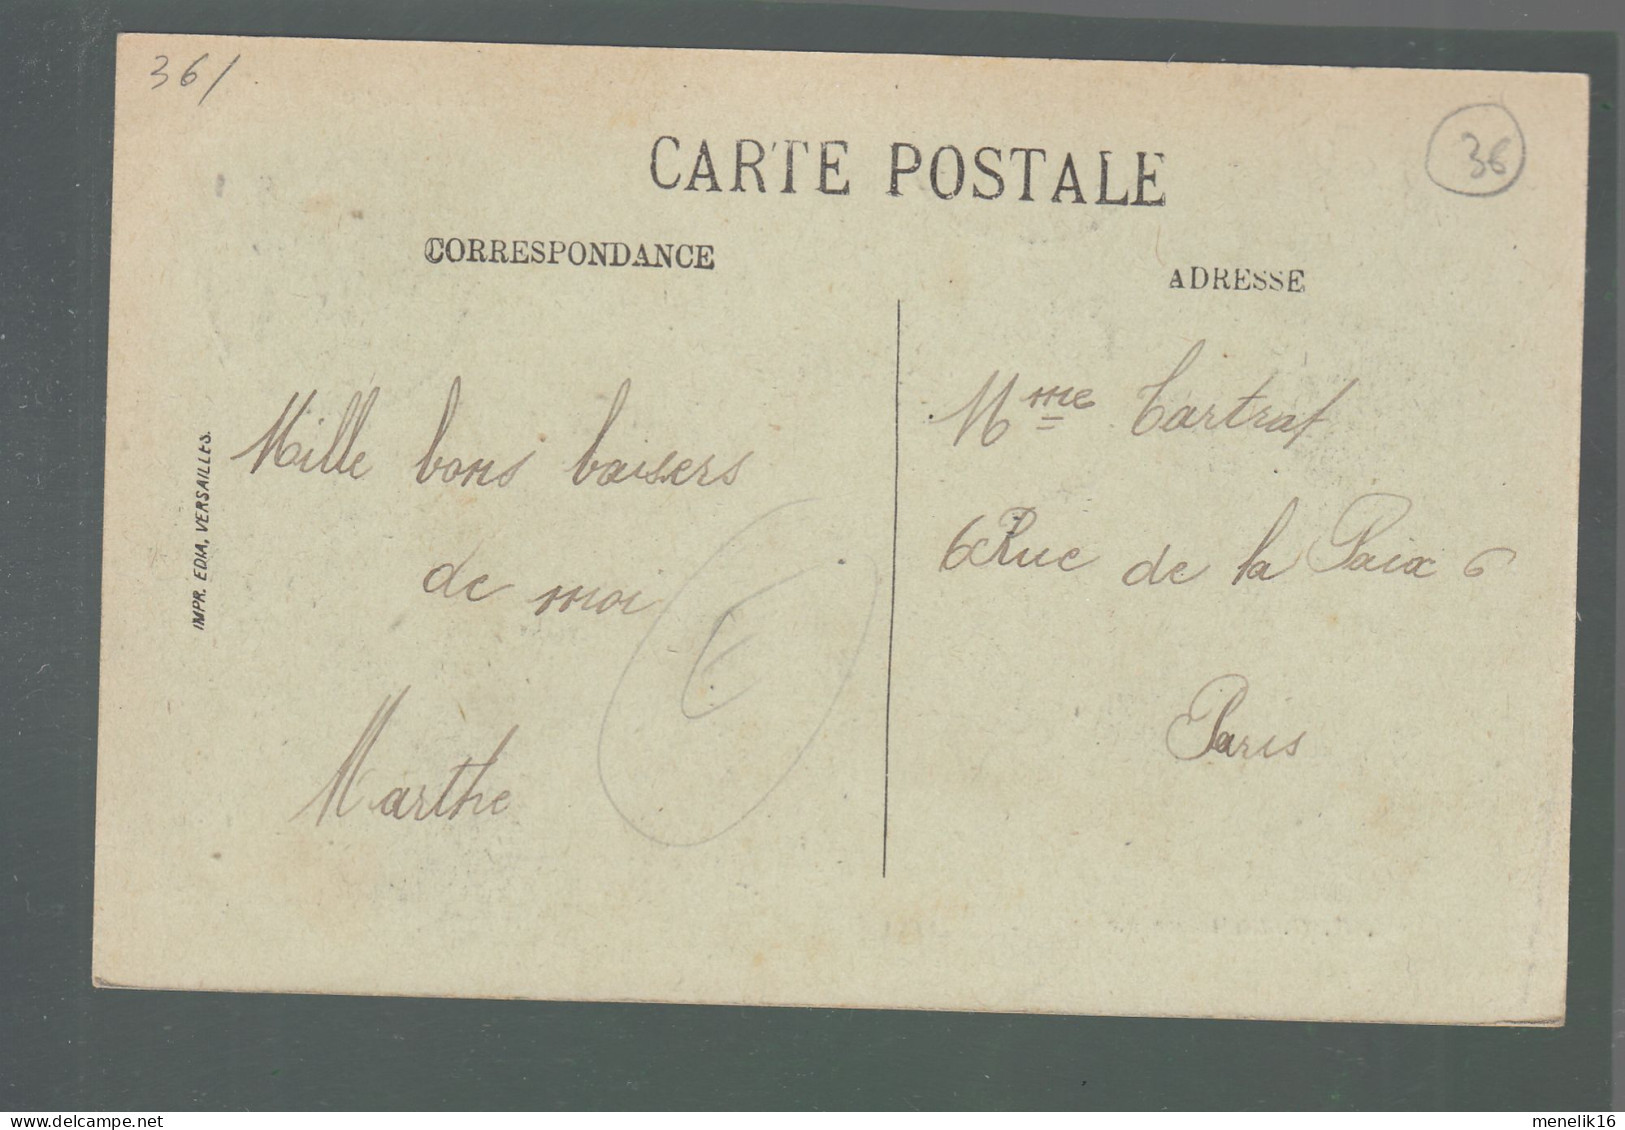 36/
36
CARTE POSTALE
CORRESPONDANCE
ADRESSE
Mille bons baisers
de moi
Marthe
Mme Tartraf
6 Rue de la Paix 6
Paris
IMPR. EDIA, VERSAILLES.
menelik16